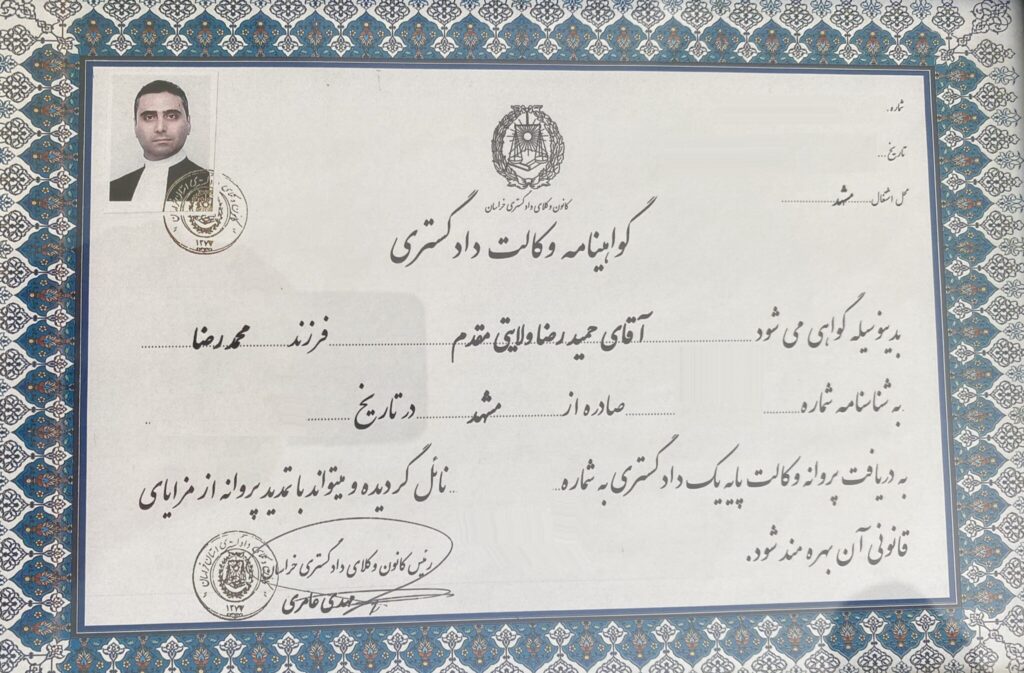 شماره.
تاریخ...
محل اشتغال......مشهد..........
کانون وکلای دادگستری خراسان
گواهینامه وکالت دادگستری
بدینوسیله گواهی می شود........آقای حمید رضا ولایتی مقدم........فرزند......محمد رضا......
به شناسنامه شماره........صادره از........مشهد........در تاریخ........
به دریافت پروانه وکالت پایه یک دادگستری به شماره.. ..نائل گردیده و میتواند با تمدید پروانه از مزایای
قانونی آن بهره مند شود.
رئیس کانون وکلای دادگستری خراسان
مهدی عامری
۱۲۷۷
۱۲۷۷